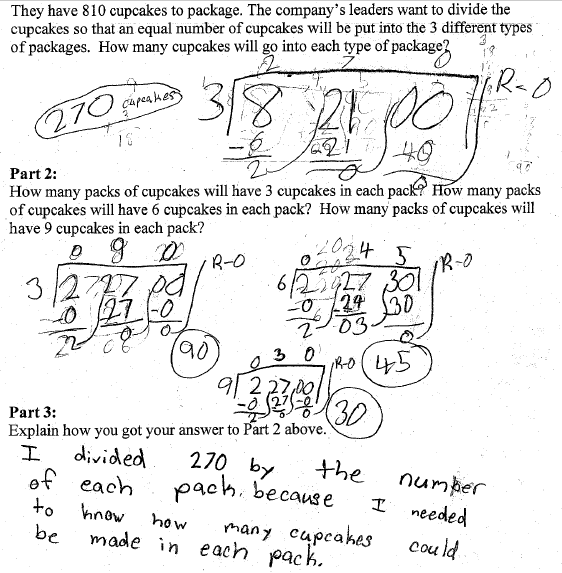 They have 810 cupcakes to package. The company's leaders want to divide the
cupcakes so that an equal number of cupcakes will be put into the 3 different types
of packages. How many cupcakes will go into each type of package?
2 7 0
270 cupcakes 3 8 21 00 R-0
-6 -21
2 0 0
Part 2:
How many packs of cupcakes will have 3 cupcakes in each pack? How many packs
of cupcakes will have 6 cupcakes in each pack? How many packs of cupcakes will
have 9 cupcakes in each pack?
0 9 0 R-0
3 2 27 00
-0 27 -0
90
0 4 5 R-0
6 2 27 30
-0 -24 30
2 03 0
45
0 3 0 R-0
9 2 27 00
-0 27 -0
2 0 0
30
Part 3:
Explain how you got your answer to Part 2 above.
I divided 270 by the number
of each pack, because I needed
to know how many cupcakes could
be made in each pack.